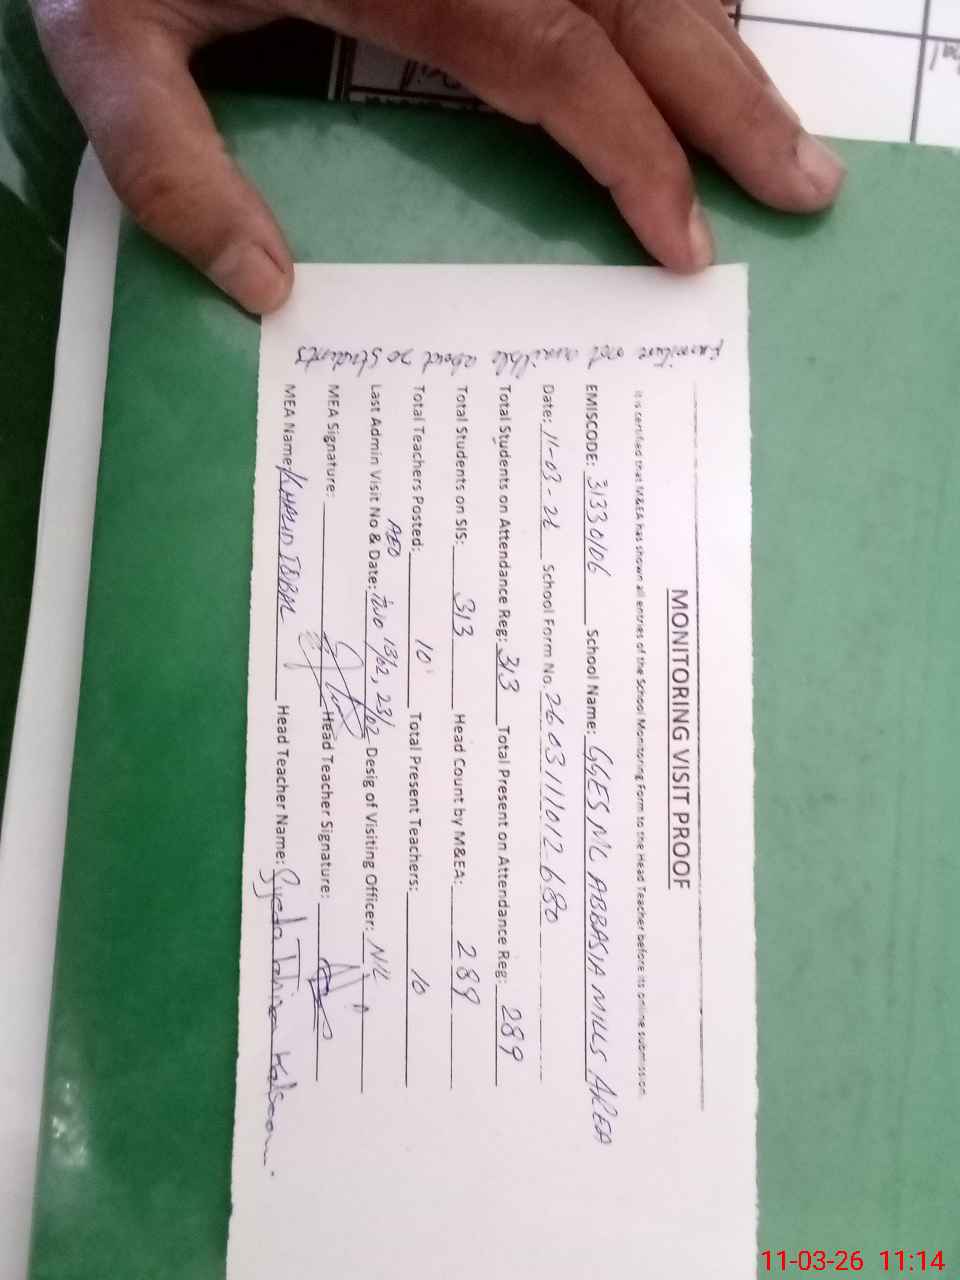 MONITORING VISIT PROOF
It is certified that M&EA has shown all entries of the School Monitoring Form to the Head Teacher before its online submission.
EMISCODE: 31330106 School Name: GGES MC ABBASIA MILLS AREA
Date: 11-03-26 School Form No. 26031111012680
Total Students on Attendance Reg: 313 Total Present on Attendance Reg: 289
Total Students on SIS: 313 Head Count by M&EA: 289
Total Teachers Posted: 10 Total Present Teachers: 10
AEO
Last Admin Visit No & Date: Two 13/02, 23/02 Desig of Visiting Officer: NIL
MEA Signature: Head Teacher Signature:
MEA Name: KHALID IQBAL Head Teacher Name: Syeda Kalsoom.
Furniture not available about 20 students
11-03-26 11:14